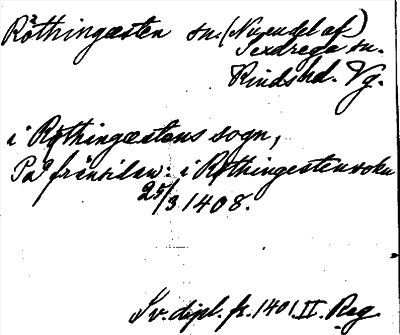 Röthingæsten sn. (Nu en del af
Sexdrega sn.
Kinds hd. Vg.
i Røthingæstens sogn,
På frånsidan: i Røthingestenosokn
25/3 1408.
Sv. dipl. fr. 1401. II. Reg.